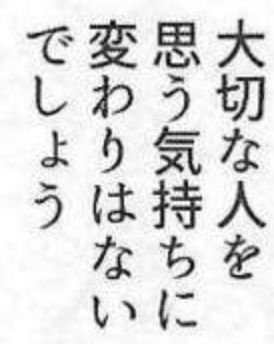 大切な人を
思う気持ちに
変わりはない
でしょう